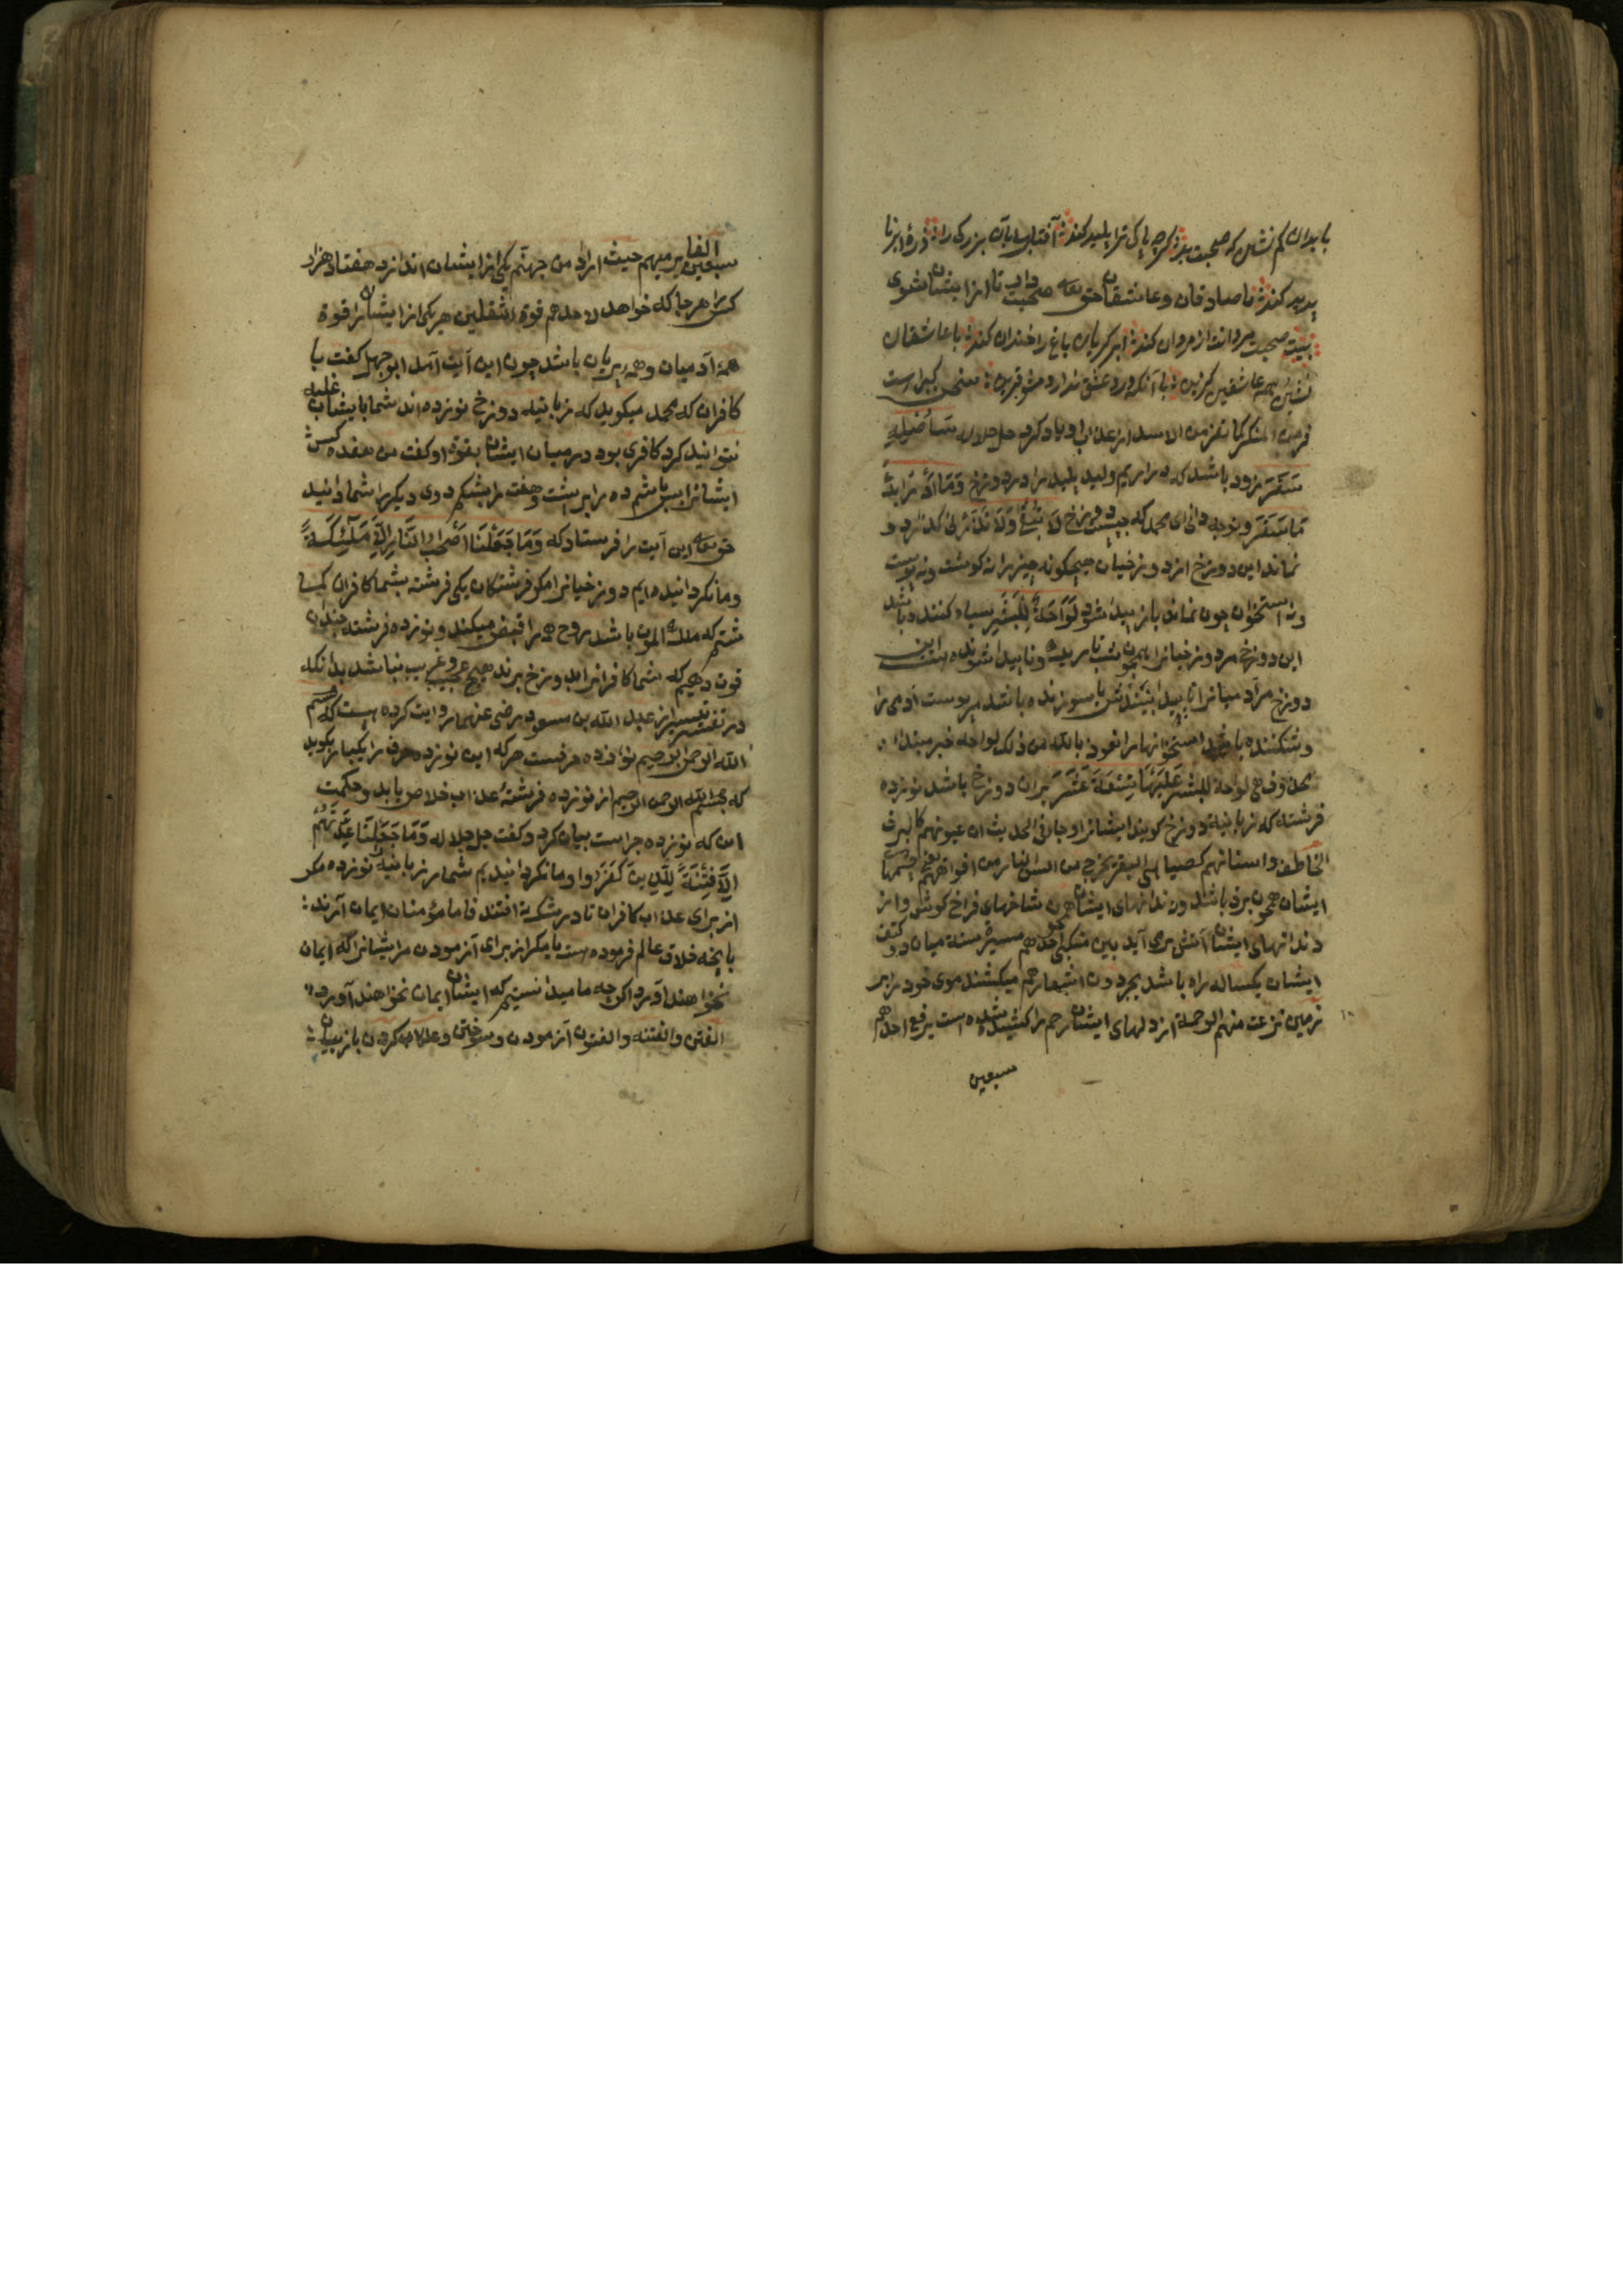 با بدان کم نشین که صحبت بد گرچه پاکی ترا پلید کند آفتاب بدان بزرگی را ذره ابر نا
پدید کند با صادقان و عاشقان حق تعه صحبت دار تا از ایشان شوی
بیت صحبت مردانت از مردان کند ابر گریان باغ را خندان کند با عاشقان
نشین همه عاشقی گزین با آنکه درد عشق ندارد مشو قرین
جل جلاله سَأُصْلِيهِ
سَقَرَ زود باشد که در آریم ولید پلید را در دوزخ وَمَا أَدْرَاكَ
مَا سَقَرُ و توچه دانی ای محمد که چیست دوزخ لَا تُبْقِي وَلَا تَذَرُ نی گذارد و
نماند این دوزخ از دوزخیان هیچگونه چیز را نه گوشت و نه پوست
و نه استخوان چون نماند باز پیدا شود لَوَّاحَةٌ لِلْبَشَرِ سیاه کننده باشد
این دوزخ مر دوزخیانرا همچون شب تاریک و ناپیدا شونده است این
دوزخ مر آدمیانرا تا پیدا بینندش یا سوزنده باشد مر پوست آدمی را
و شکننده باشد استخوانها را نعوذ بالله من ذلک لواحه خبر مبتداء
محذوف هی لواحة للبشر عَلَيْهَا تِسْعَةَ عَشَرَ بران دوزخ باشد نوزده
فرشته که زبانیهٔ دوزخ گویند ایشانرا و جاء فی الحدیث ان عیونهم کالبرق
الخاطف و اسنانهم کصیاصی البقر یخرج من السن النار من افواههم یعنی چشمهاء
ایشان همچون برق باشد و دندانهای ایشان همچون شاخهای فراخ گوش و از
دندانهای ایشان آتش بری آید بین منکبی احدهم مسیرة سنة میان دو کتف
ایشان یکساله راه باشد یجردون اشعارهم میکشند موی خود را بر
زمین نزعت منهم الرحمة از دلهای ایشان رحم را کشیده شده است یرفع احدهم
سبعین
سبعین الفا یرمیهم حیث اراد من جهنم یکی از ایشان اندازد هفتاد هزار
کس را هرجا که خواهد لاحدهم قوة الثقلین هر یکی از ایشانرا قوة
همه آدمیان و همه پریان باشد چون این آیت آمد ابو جهل گفت با
کافران که محمد میگوید که زبانیه دوزخ نوزده اند شما با ایشان غلبه
نتوانید کرد کافری بود در میان ایشان بقوة او گفت من هفده کس
ایشانرا بس باشم ده را بر پشت و هفت را بشکم دوی دیگر را شما دانید
حق تعه این آیت را فرستاد که وَمَا جَعَلْنَا أَصْحَابَ النَّارِ إِلَّا مَلَئِكَةً
و ما نگردانیده ایم دوزخیانرا مگر فرشتگان یکی فرشته بشما کافران
شتم که ملک الموت باشد روح همه را قبض میکند و نوزده فرشته چندان
قوت دهیم که شما کافرانرا بدوزخ برند هیچ عجب و غریب نباشد بدانکه
در تفسیر تیسیر از عبد الله بن مسعود رضی عنهما روایت کرده است که بسم
الله الرحمن الرحیم نوزده حرفست هر که این نوزده حرف را یکبار بگوید
که بسم الله الرحمن الرحیم از نوزده فرشتهٔ عذاب خلاص یابد و حکمت
این که نوزده چراست بیان کرد و گفت جل جلاله وَمَا جَعَلْنَا عِدَّتَهُمْ
إِلَّا فِتْنَةً لِلَّذِينَ كَفَرُوا و ما نگردانیدیم شمار زبانیه را نوزده مگر
از برای عذاب کافران تا در شک افتند فاما مؤمنان ایمان آرند
بآنچه خلاق عالم فرموده است یا مگر از برای آزمودن مر ایشانرا که ایمان
نخواهند آورد اگرچه ما میدانستیم که ایشان ایمان نخواهند آورد
الفتن والفتنه والفتون آزمودن و سوختن و عذاب کردن بازبیان